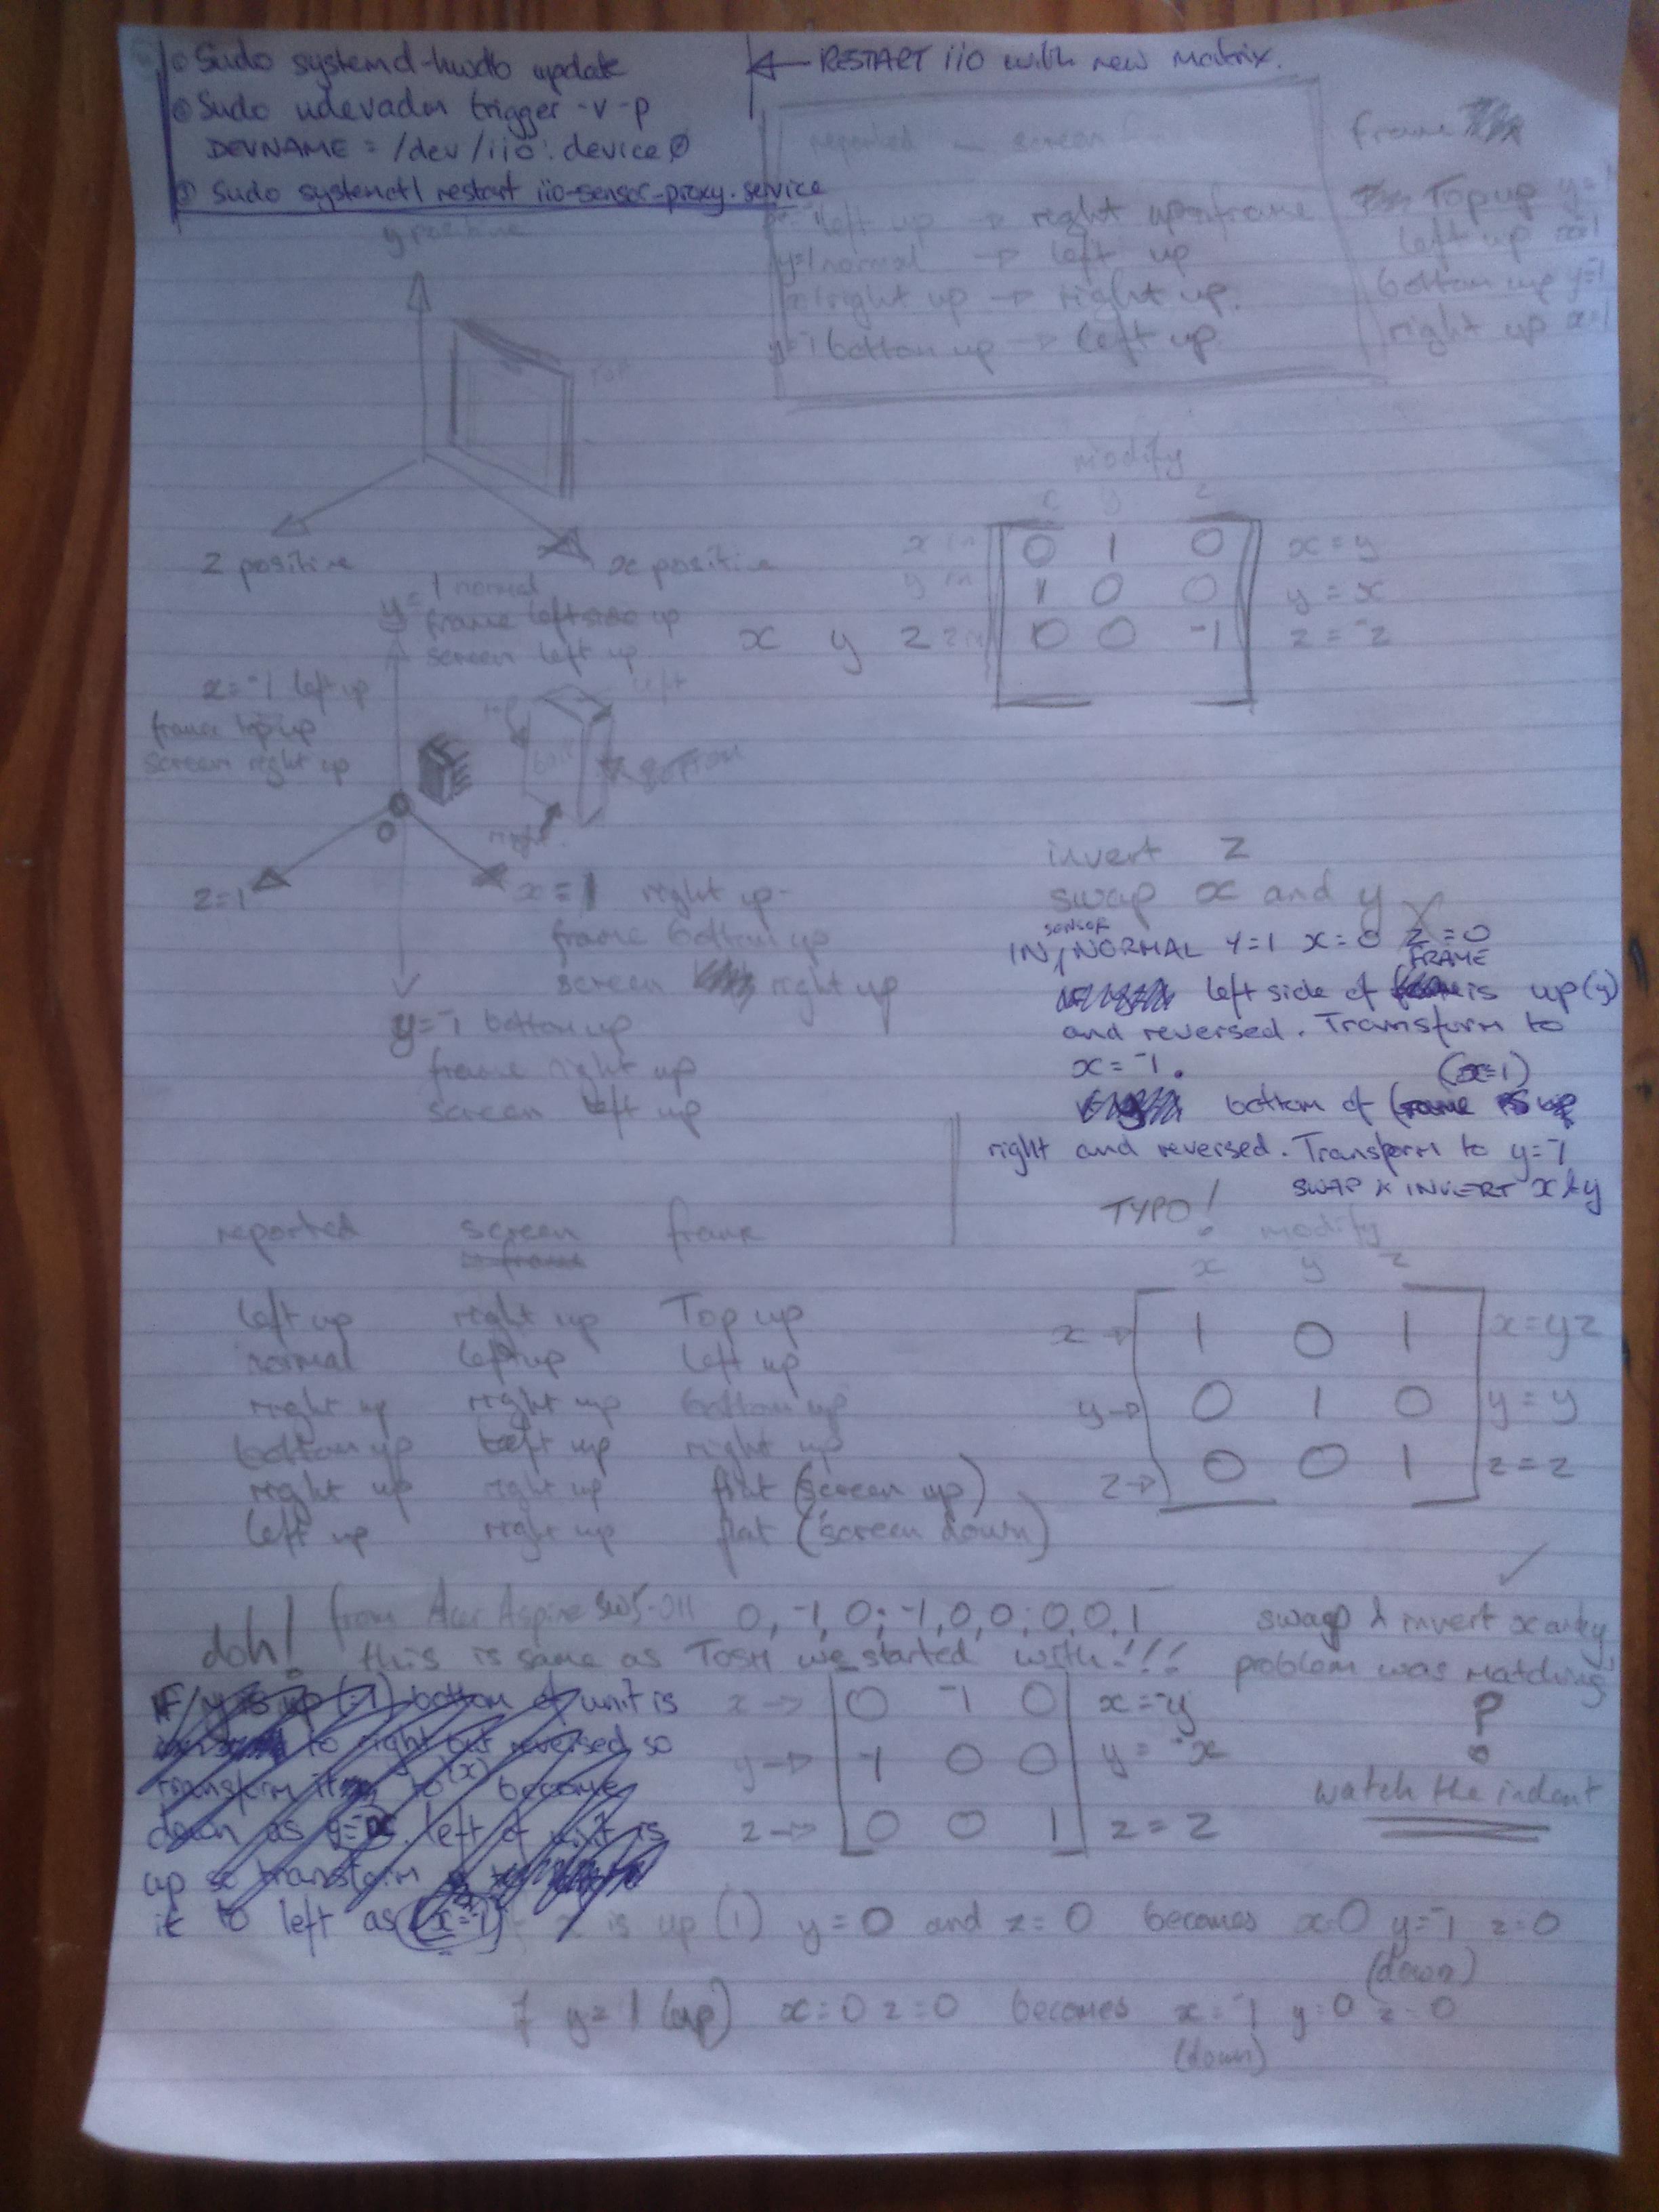 ① Sudo systemd-hwdb update
② Sudo udevadm trigger -v -p
DEVNAME = /dev/iio:device0
③ Sudo systemctl restart iio-sensor-proxy.service
← RESTART iio with new matrix.
reported screen
left up → right up frame
y=1 normal → left up
right up → right up.
y=-1 bottom up → left up
frame
Top up
left up
bottom up y=-1
right up x=1
y positive
z positive
x positive
modify
x in 0 1 0 x = y
y in 1 0 0 y = x
x y z z in 0 0 -1 z = -z
y = 1 normal
frame left side up
screen left up
x = -1 left up
frame top up
screen right up
left
BOTTOM
right
z=1
x = 1 right up
frame bottom up
screen right up
y = -1 bottom up
frame right up
screen left up
invert z
swap x and y
SENSOR
IN, NORMAL Y=1 x=0 z=0
FRAME
left side of is up (y)
and reversed. Transform to
x = -1. (x=1)
bottom of frame is up
right and reversed. Transform to y=-1
SWAP & INVERT x & y
TYPO!
modify
x y z
x → 1 0 1 x = yz
y → 0 1 0 y = y
z → 0 0 1 z = z
reported screen frame
left up right up Top up
normal left up left up
right up right up bottom up
bottom up left up right up
right up right up flat (screen up)
left up right up flat (screen down)
doh! from Acer Aspire SW5-011 0,-1,0;-1,0,0;0,0,1
this is same as TOSH we started with!!!
swap & invert x and y
problem was matching
?
watch the indent
x → 0 -1 0 x = -y
y → -1 0 0 y = -x
z → 0 0 1 z = z
If y is up (-1) bottom of unit is
to right but reversed so
transform it to (x) become
down as left of unit is
up so transform
it to left as (x=-1)
is up (1) y=0 and z=0 becomes x=0 y=-1 z=0
(down)
if y=1 (up) x=0 z=0 becomes x=-1 y=0 z=0
(down)